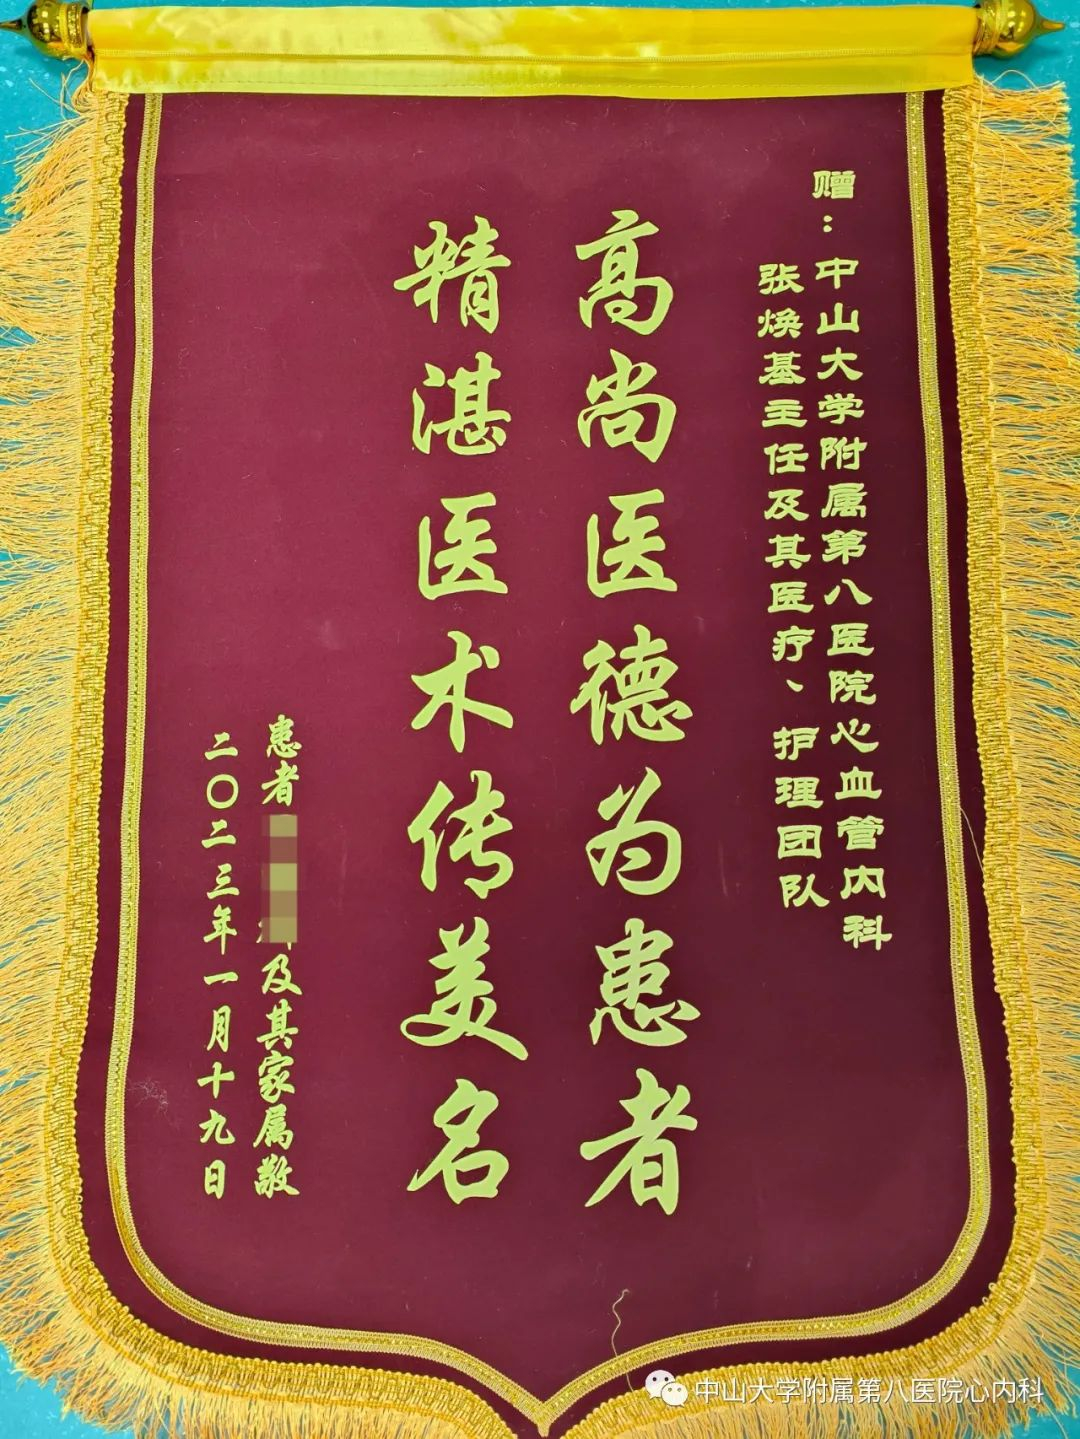 赠：中山大学附属第八医院心血管内科
张焕基主任及其医疗、护理团队
高尚医德为患者
精湛医术传美名
患者
及其家属敬
二〇二三年一月十九日
中山大学附属第八医院心内科